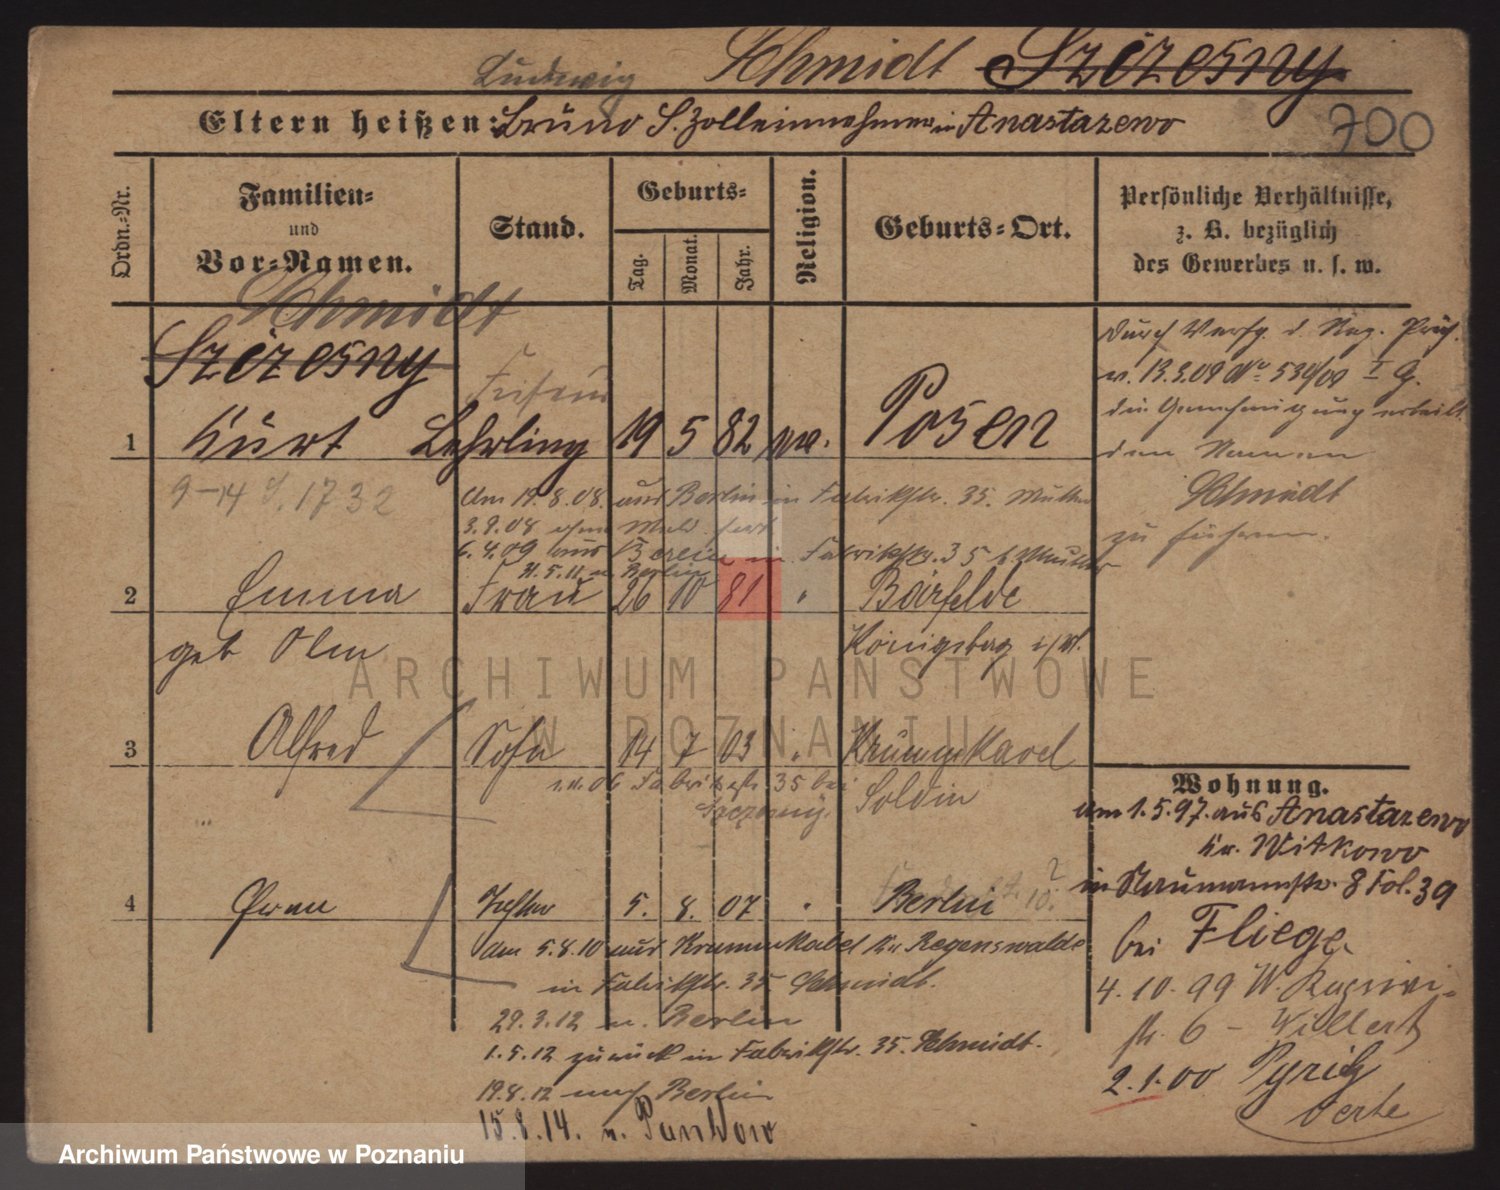 Ludwig Schmidt Szczesny
Eltern heißen: Bruno S. Zolleinnehmer in Anastazewo
700
Ordn.-Nr.
Familien-
und
Vor-Namen.
Stand.
Geburts-
Tag.
Monat.
Jahr.
Religion.
Geburts-Ort.
Persönliche Verhältnisse,
z. B. bezüglich
des Gewerbes u. s. w.
Schmidt
Szczesny
Friseur
1 Kurt Lehrling 19 5 82 Posen
9-14 1732
Am 19.8.08. aus Berlin in Fabrikstr. 35. Mutter
3.9.08 ohne Meld. fort
6.4.09 aus Berlin in Fabrikstr. 35 b Mutter
n. Berlin
2 Emma Frau 26 10 81 " Bärfelde
geb Olm Königsberg
3 Alfred Sohn 14 7 03 " Krummkavel
06 Fabrikstr 35 bei
Szczesny. Soldin
4 Tochter 5. 8. 07 " Berlin
Am 5.8.10 aus Krummkabel Kr Regenswalde
in Fabrikstr. 35 Schmidt.
29.3.12 n. Berlin
1.5.12 zurück in Fabrikstr. 35. Schmidt.
19.8.12 nach Berlin
15.8.14. n. Pankow
durch Verfg. d. Reg. Präs.
v. 13.3.09 No 539/09 I G.
die Genehmigung erteilt
den Namen
Schmidt
zu führen.
Wohnung.
am 1.5.97. aus Anastazewo
Kr. Witkowo
in Naumannstr. 8 Fol. 39
bei Fliege
4.10.99 W.
str. 6 - Willert
2.1.00 Pyritz
ARCHIWUM PAŃSTWOWE
W POZNANIU
Archiwum Państwowe w Poznaniu